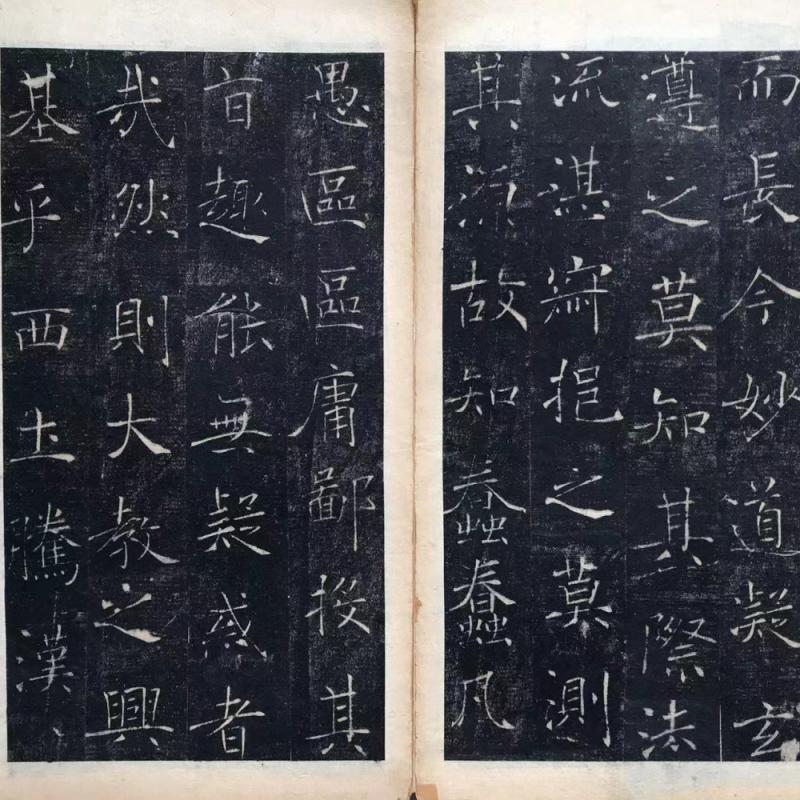 而長今妙道凝玄
遵之莫知其際法
流湛寂挹之莫測
其源故知蠢蠢凡
愚區區庸鄙投其
旨趣能無疑惑者
哉然則大教之興
基乎西土騰漢